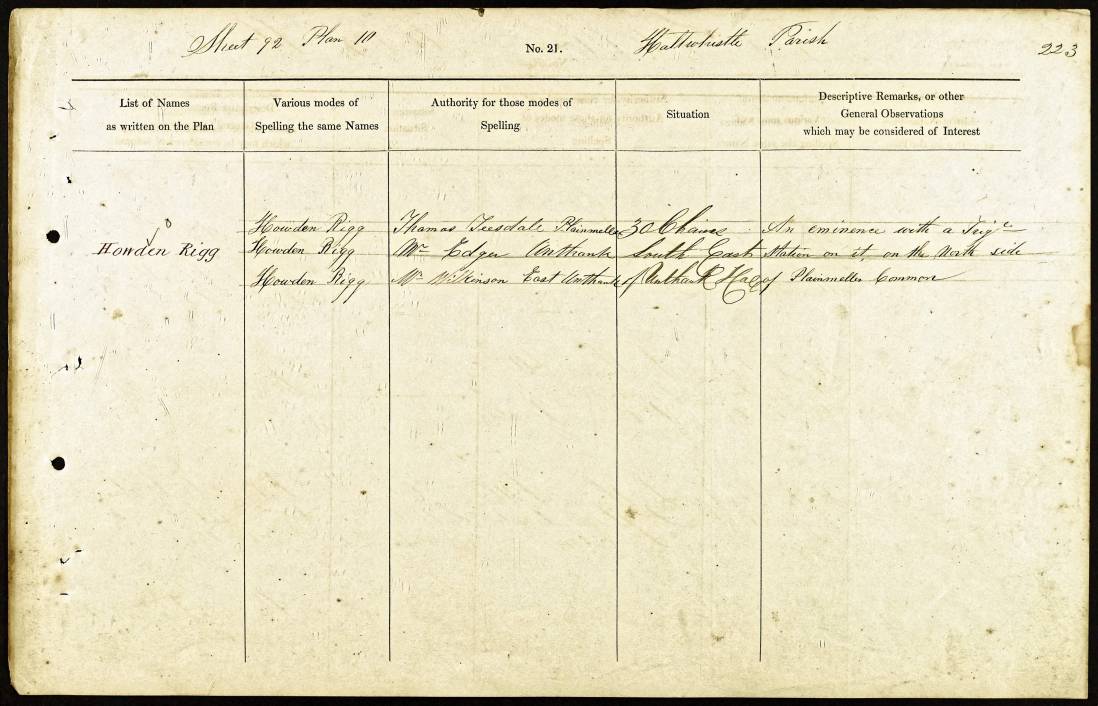 Sheet 92 Plan 10
No. 21.
Haltwhistle Parish
223
List of Names
as written on the Plan
Various modes of
Spelling the same Names
Authority for those modes of
Spelling
Situation
Descriptive Remarks, or other
General Observations
which may be considered of Interest
Howden Rigg
Howden Rigg
Howden Rigg
Howden Rigg
Thomas Teesdale Plainmeller
Mr Edger Unthank
Mr Wilkinson East Unthank
30 Chains
South East
of Unthank Hall
An eminence with a Trigl
Station on it, on the North side
of Plainmeller Common